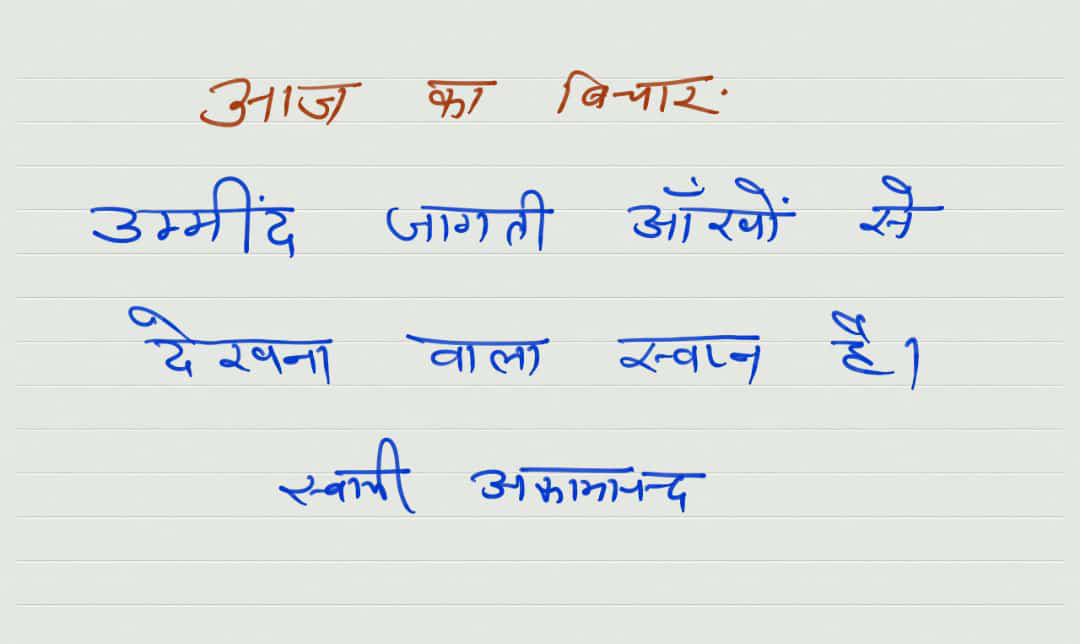 आज का विचार.
उम्मींद जागती आँखों से
देखना वाला स्वप्न है।
स्वामी अकामानन्द